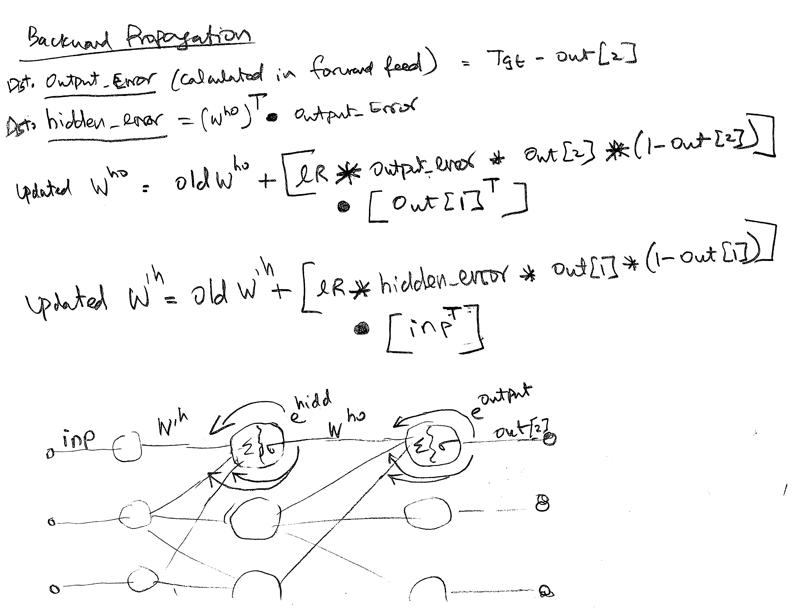 Backward Propagation
Dist. Output_Error (calculated in forward feed) = Tgt - out[2]
Dist. hidden_error = (W^ho)^T • output_Error
updated W^ho = old W^ho + [lR * output_error * out[2] * (1-out[2])]
• [out[1]^T]
updated W^ih = old W^ih + [lR * hidden_error * out[1] * (1-out[1])]
• [inp^T]
inp W^ih e^hidd W^ho e^output out[2]
Σ}σ Σ}σ